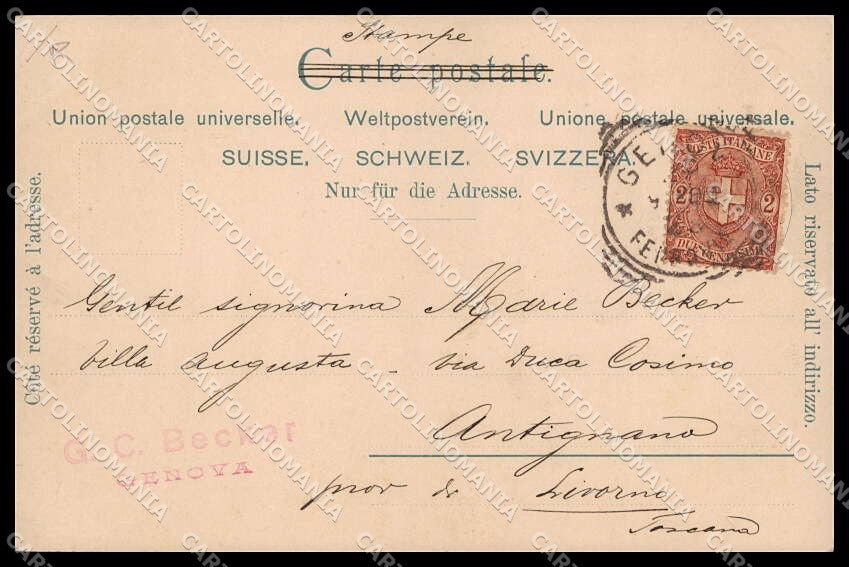 Stampe
Carte postale.
Union postale universelle. Weltpostverein. Unione postale universale.
SUISSE. SCHWEIZ. SVIZZERA.
Nur für die Adresse.
Côté réservé à l'adresse.
Lato riservato all' indirizzo.
POSTE ITALIANE
2 2
DUE CENTESIMI
Gentil signorina Marie Becker
Villa Augusta - via Duca Cosimo
Antignano
prov di Livorno
Toscana
G. C. Becker
GENOVA
CARTOLINOMANIA